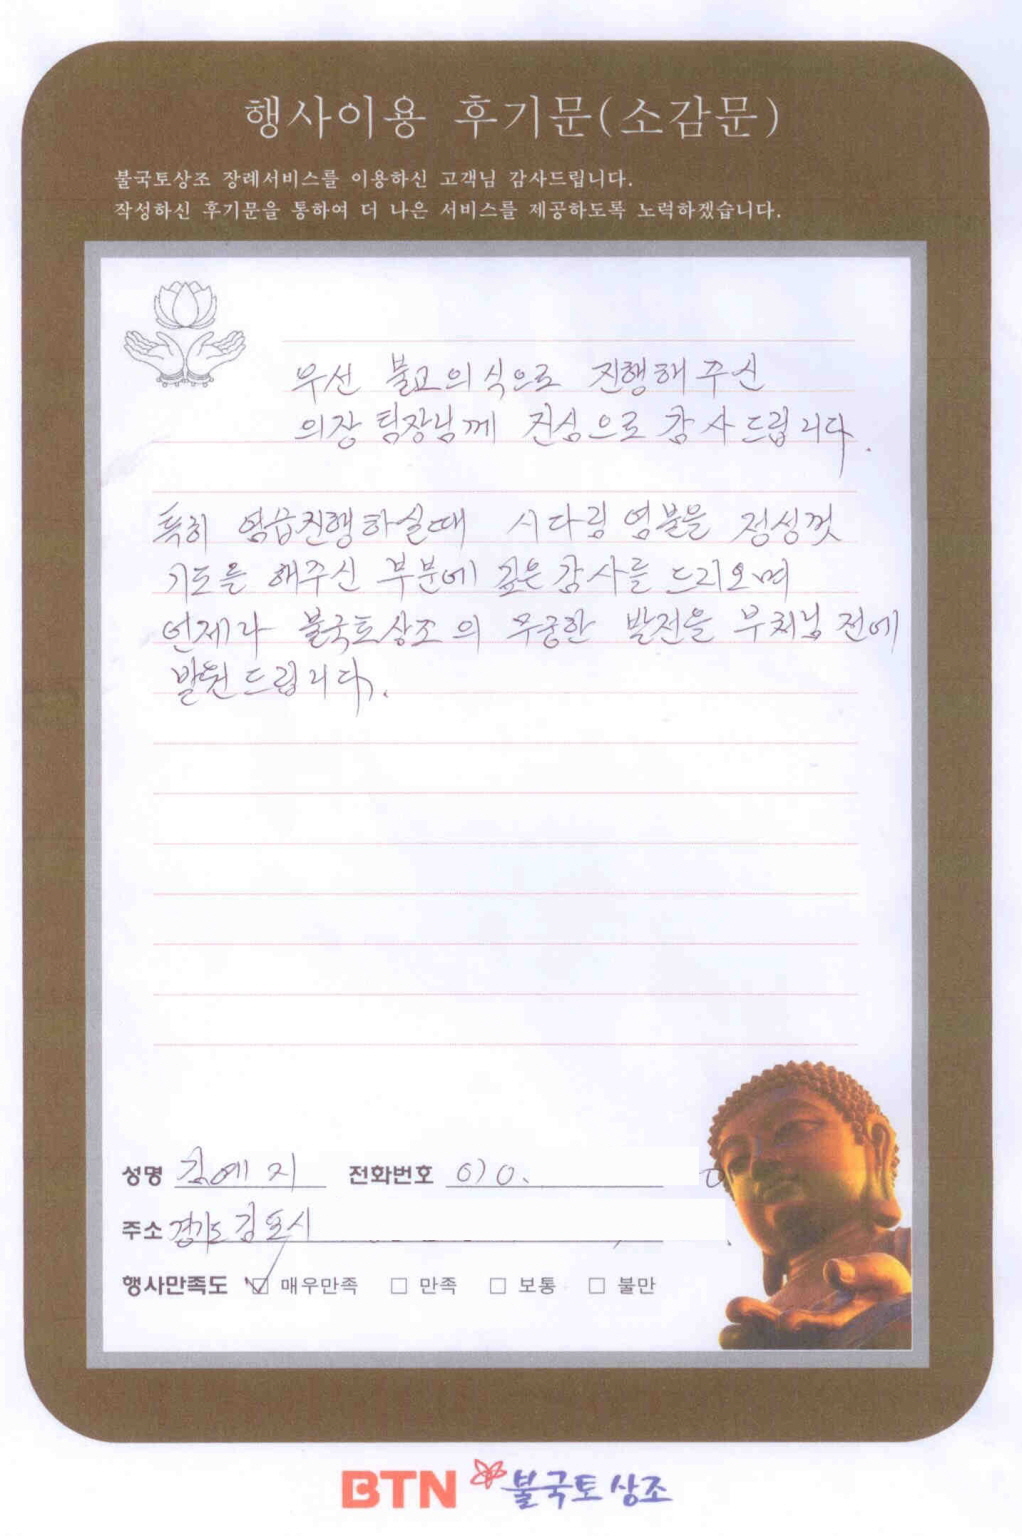 행사이용 후기문(소감문)
불국토상조 장례서비스를 이용하신 고객님 감사드립니다.
작성하신 후기문을 통하여 더 나은 서비스를 제공하도록 노력하겠습니다.
우선 불교의식으로 진행해 주신
의장 팀장님께 진심으로 감사드립니다.
특히 염습진행하실때 시다림 염불을 정성껏
기도를 해주신 부분에 깊은 감사를 드리오며
언제나 불국토상조의 무궁한 발전을 부처님 전에
발원드립니다.
성명 김예지 전화번호 010.
주소 경기도 김포시
행사만족도 ☑ 매우만족 □ 만족 □ 보통 □ 불만
BTN 불국토상조